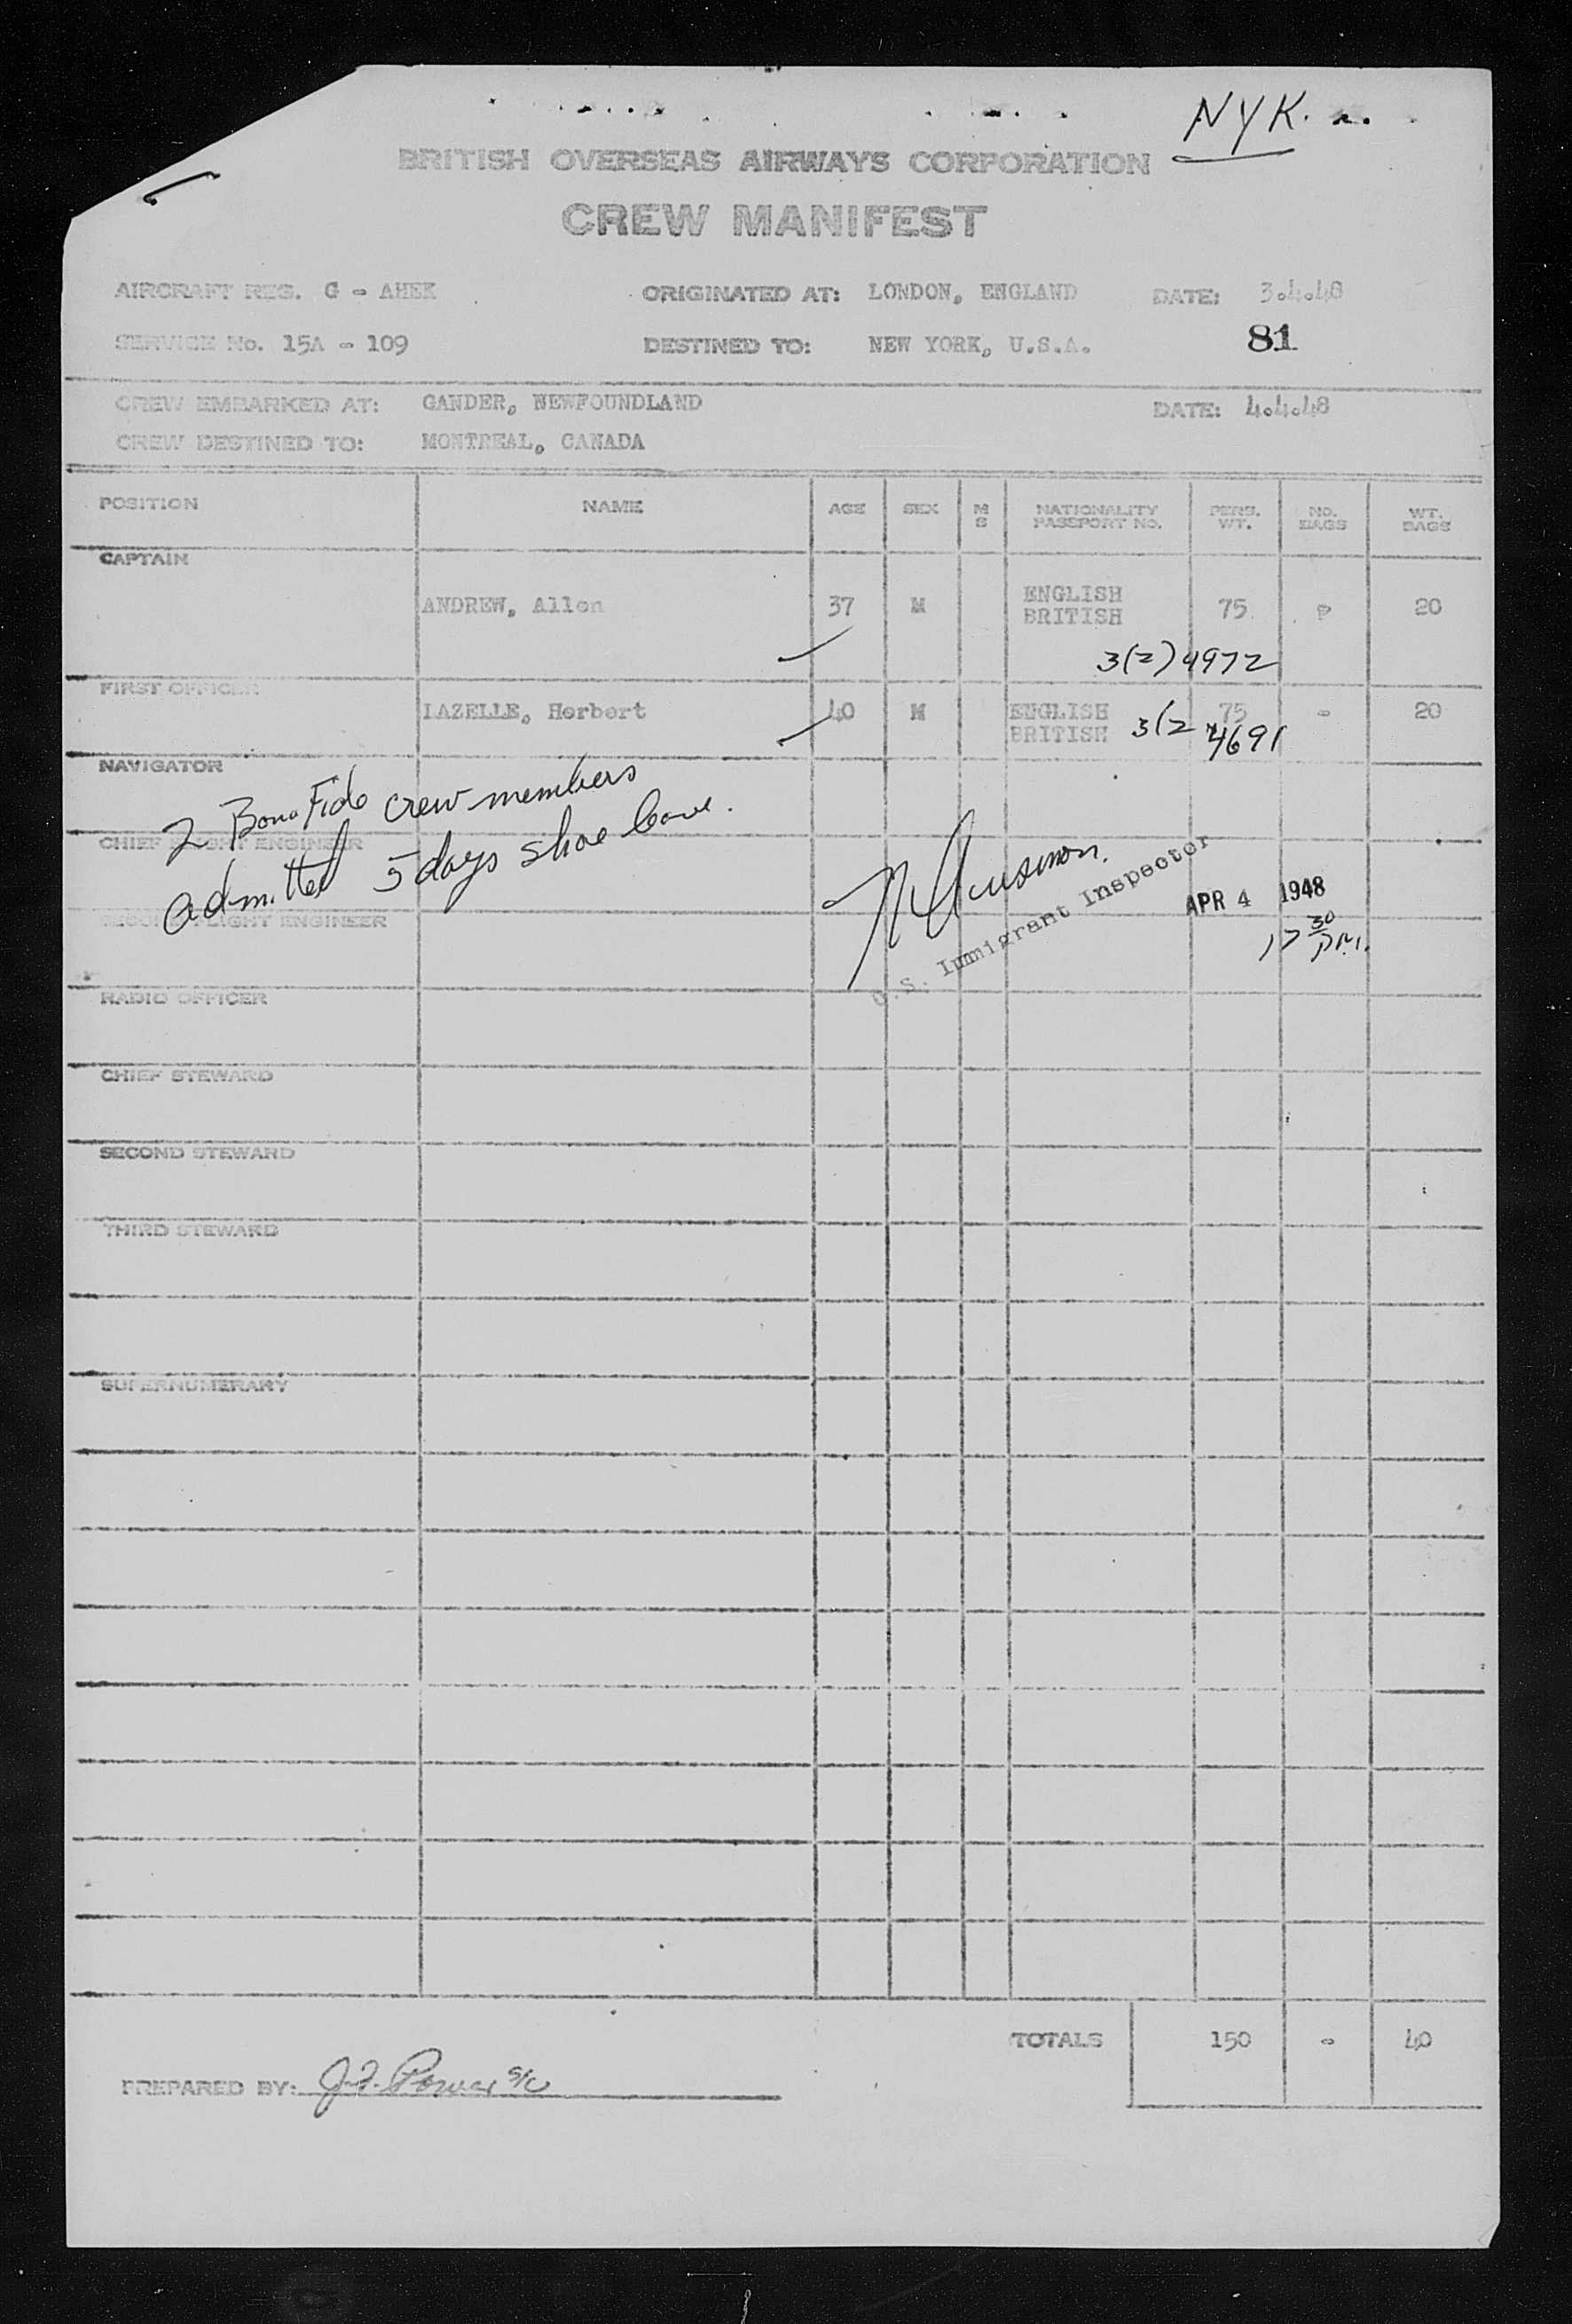 NYK.
BRITISH OVERSEAS AIRWAYS CORPORATION
CREW MANIFEST
AIRCRAFT REG. G - AHEK ORIGINATED AT: LONDON, ENGLAND DATE: 3.4.48
SERVICE No. 15A - 109 DESTINED TO: NEW YORK, U.S.A. 81
CREW EMBARKED AT: GANDER, NEWFOUNDLAND DATE: 4.4.48
CREW DESTINED TO: MONTREAL, CANADA
POSITION NAME AGE SEX M S NATIONALITY PASSPORT NO. PERS. WT. NO. BAGS WT. BAGS
CAPTAIN
ANDREW, Allen 37 M ENGLISH BRITISH 75 20
3(2)4972
FIRST OFFICER
LAZELLE, Herbert 40 M ENGLISH BRITISH 75 - 20
3(2 4691
NAVIGATOR
2 Bona Fide crew members
CHIEF FLIGHT ENGINEER
admitted 5 days shoe leave.
U.S. Immigrant Inspector
APR 4 1948
SECOND FLIGHT ENGINEER
30
PM.
RADIO OFFICER
CHIEF STEWARD
SECOND STEWARD
THIRD STEWARD
SUPERNUMERARY
TOTALS 150 - 40
PREPARED BY: J.F. Power